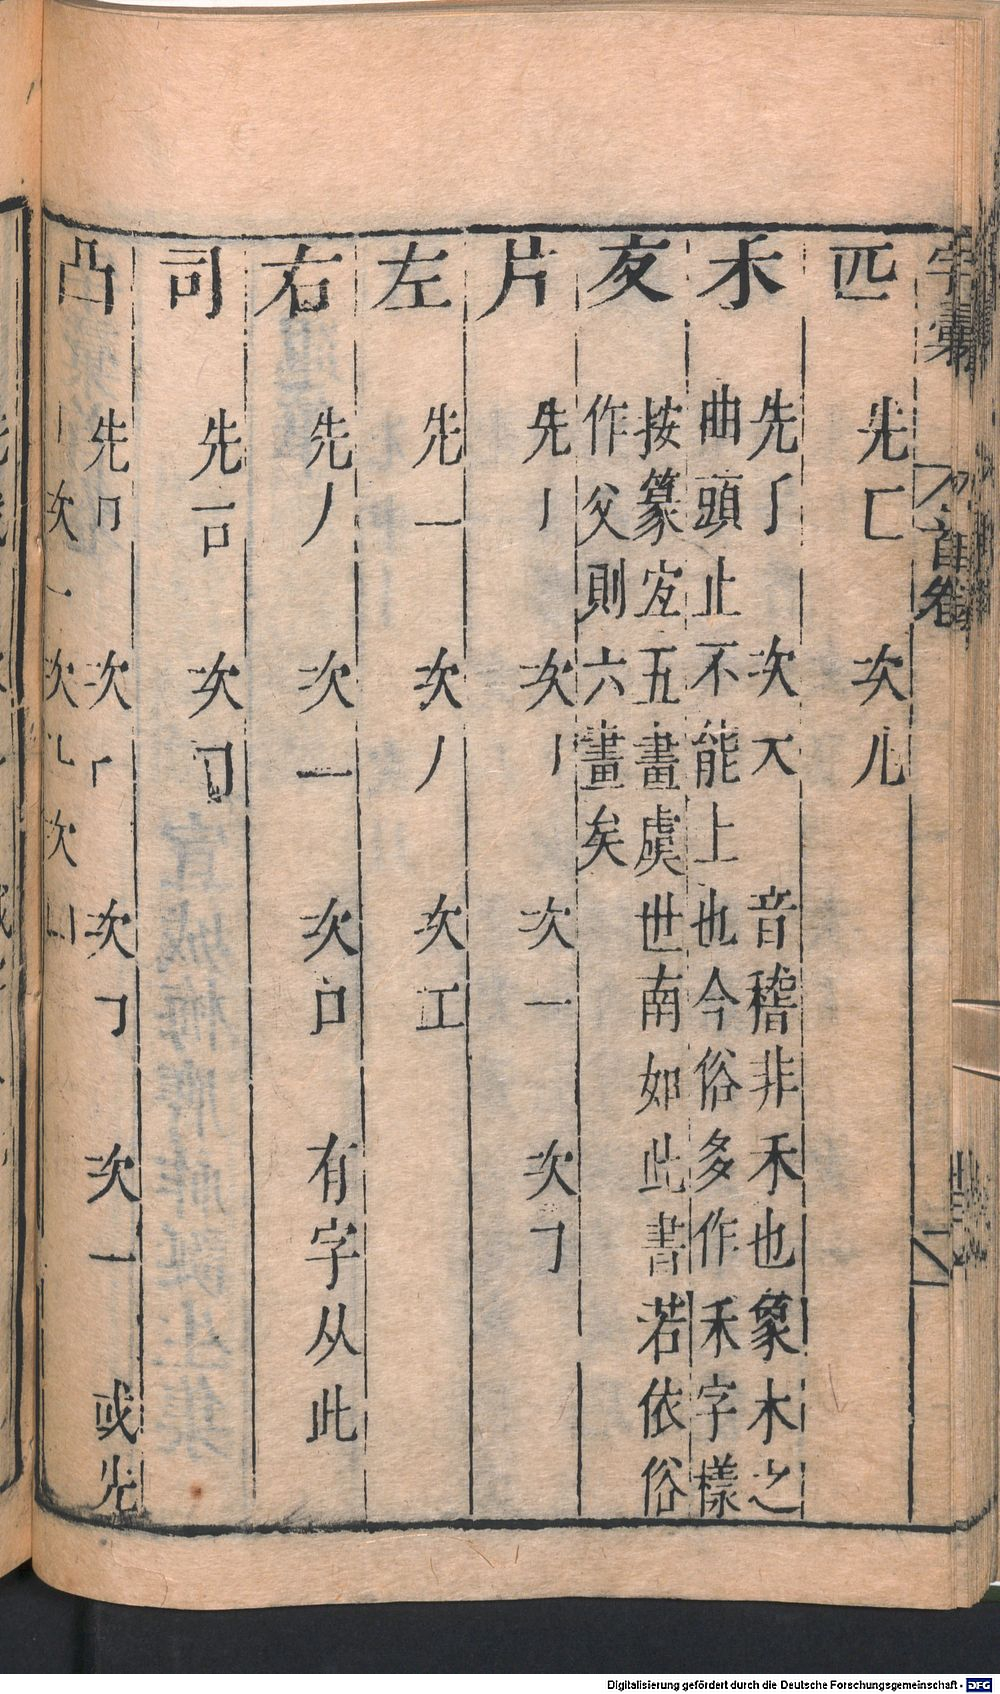 字彙 首卷
匹 先匚 次儿
𥝌 先亅 次
音稽非禾也象木之
曲頭止不能上也今俗多作禾字樣
按篆㝊五畫虞世南如此書若依俗
作父則六畫矣
片 先丨 次丨 次一 次㇆
左 先一 次丿 次工
右 先丿 次一 次口 有字从此
司 先𠮛 次㇆
凸 先 次 次㇆ 次一 或先
丨次一次㇂次凵
Digitalisierung gefördert durch die Deutsche Forschungsgemeinschaft - DFG